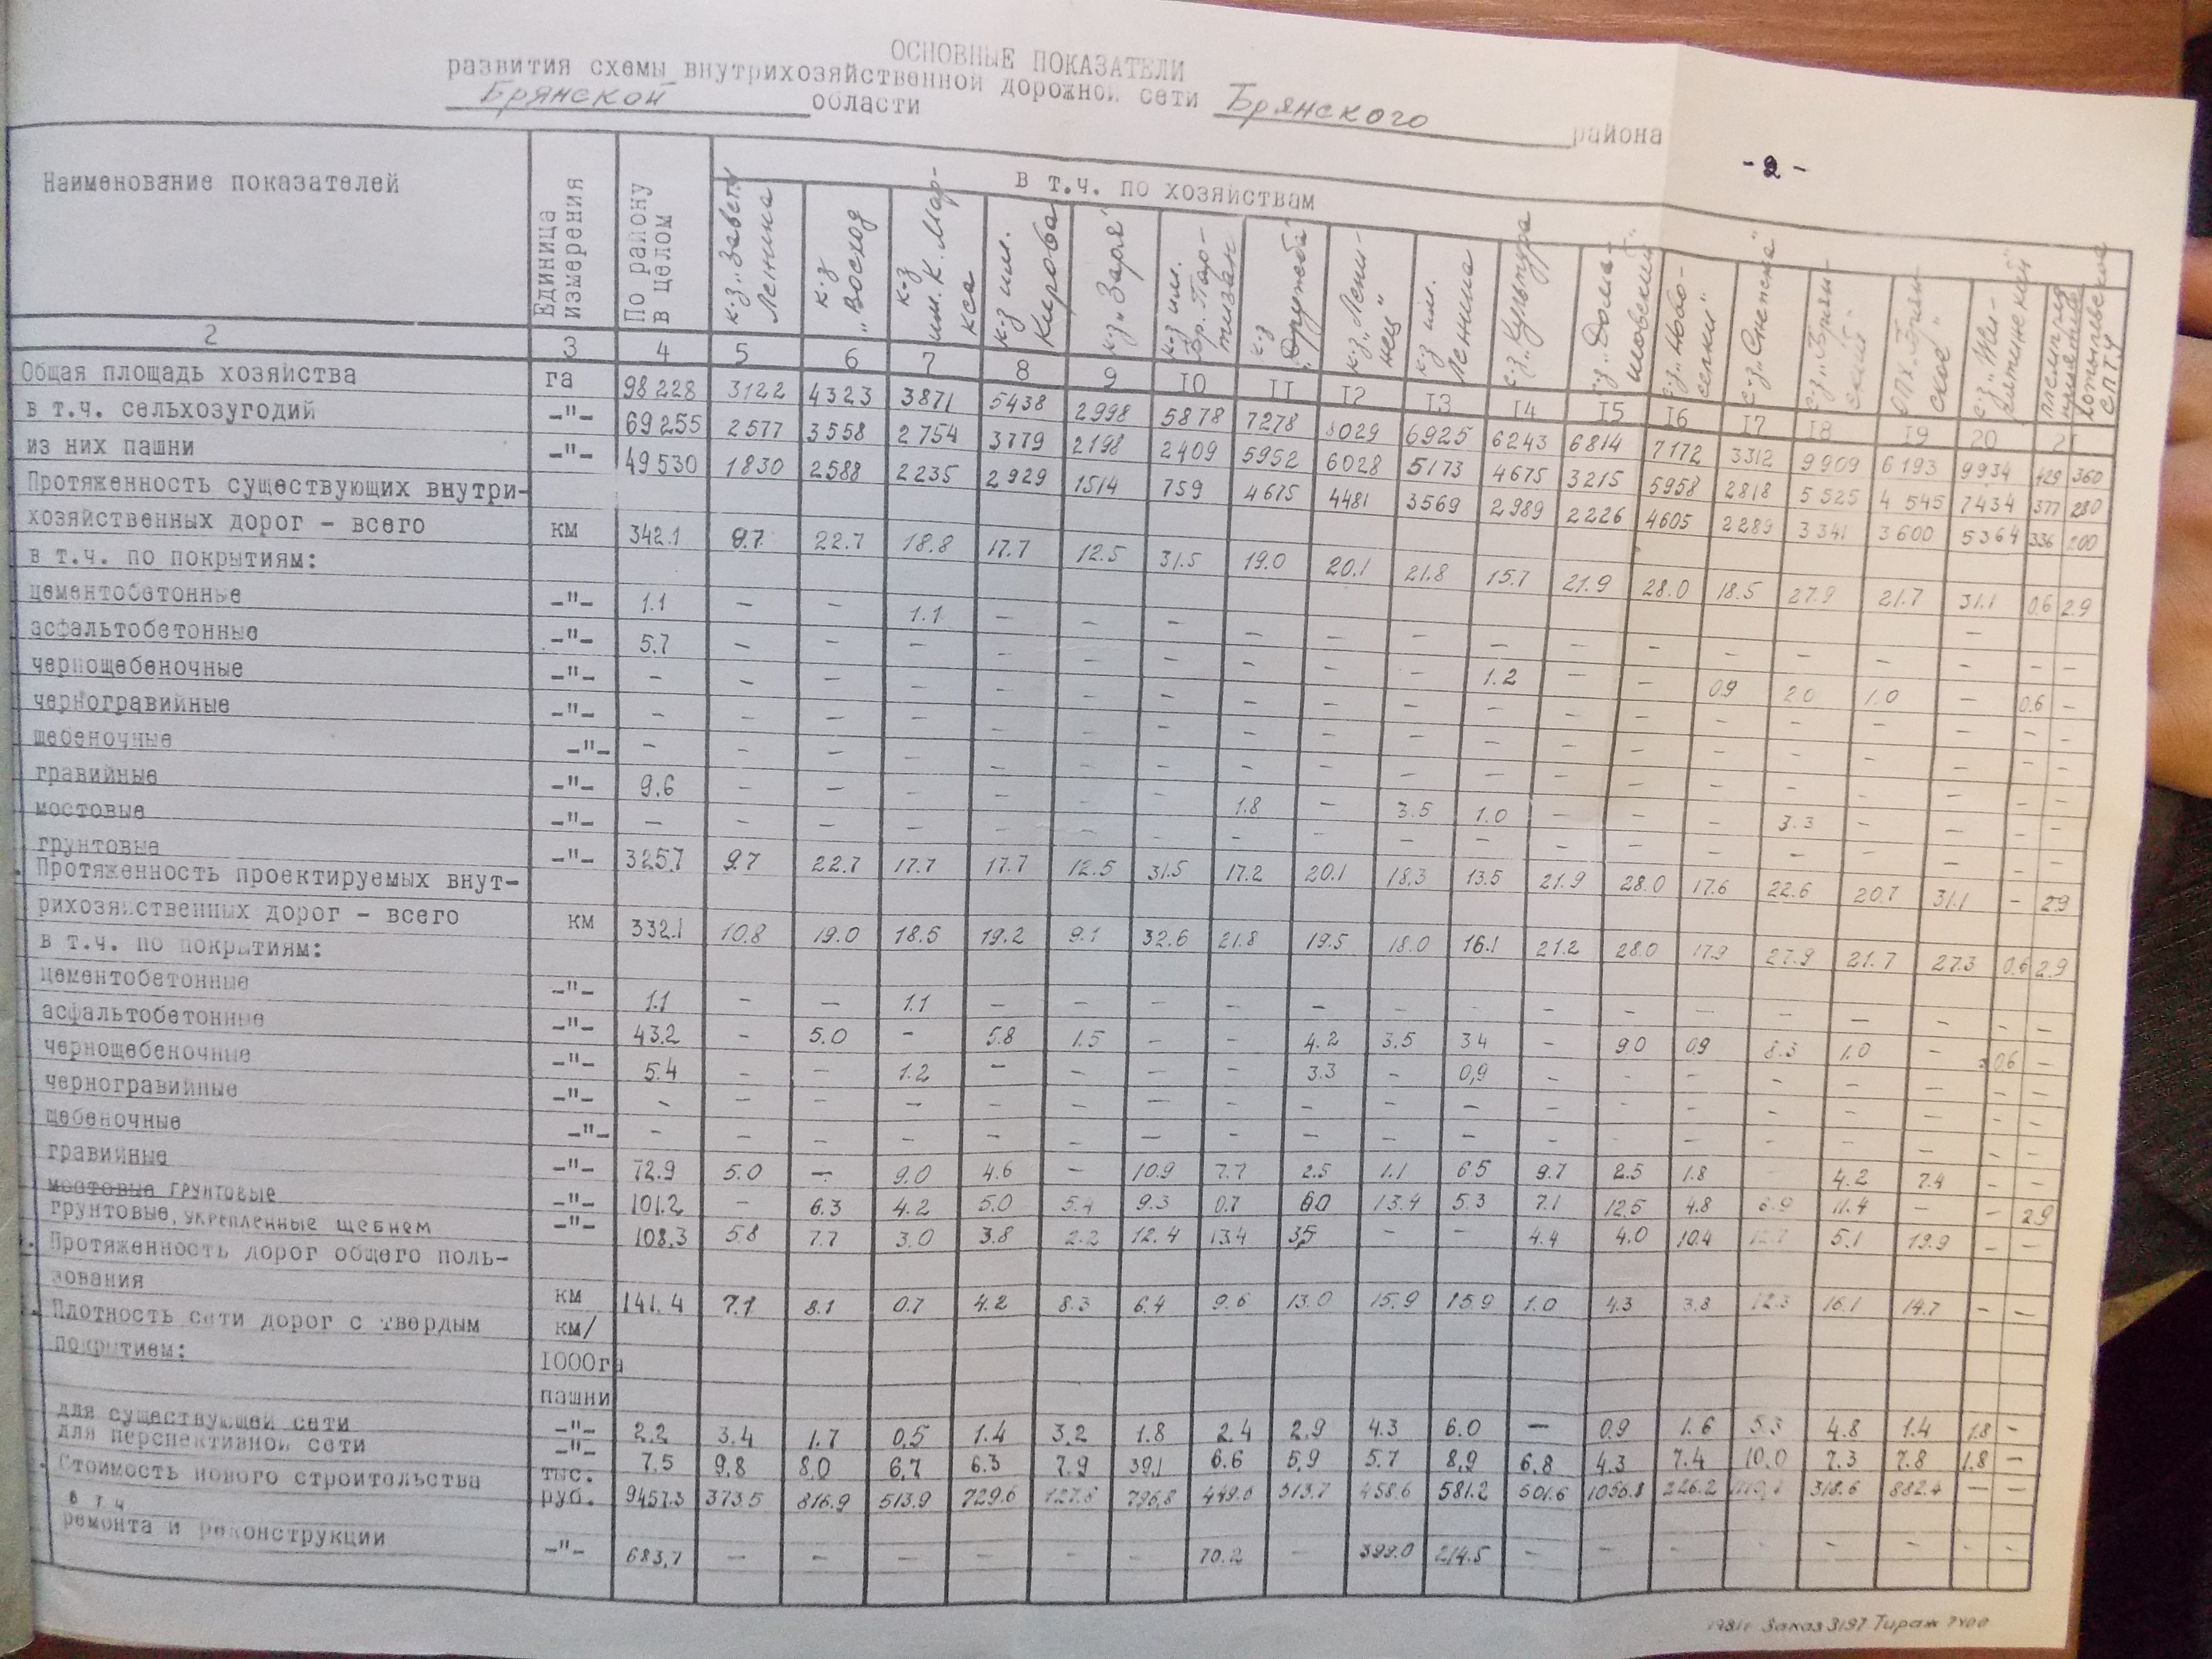 ОСНОВНЫЕ ПОКАЗАТЕЛИ
развития схемы внутрихозяйственной дорожной сети Брянского района
Брянской области
- 2 -
Наименование показателей Единица измерения По району в целом в т.ч. по хозяйствам
к-з „Заветы Ленина к-з „Восход к-з им. К. Маркса к-з им. Кирова к-з „Заря" к-з им. Бр. Партизан к-з „Дружба" к-з „Ленинец" к-з им. Ленина с-з „Культура с-з „Новоселки" с-з „Снежка" с-з „Брянский" ОПХ „Брянское"
2 3 4 5 6 7 8 9 10 11 12 13 14 15 16 17 18 19 20 21
Общая площадь хозяйства га 98228 3122 4323 3871 5438 2998 5878 7278 8029 6925 6243 6814 7172 3312 9909 6193 9934 429 360
в т.ч. сельхозугодий -"- 69255 2577 3558 2754 3779 2198 2409 5952 6028 5173 4675 3215 5958 2818 5525 4545 7434 377 280
из них пашни -"- 49530 1830 2588 2235 2929 1514 759 4675 4481 3569 2989 2226 4605 2289 3341 3600 5364 336 200
Протяженность существующих внутри-
хозяйственных дорог - всего км 342.1 9.7 22.7 18.8 17.7 12.5 31.5 19.0 20.1 21.8 15.7 21.9 28.0 18.5 27.9 21.7 31.1 0.6 2.9
в т.ч. по покрытиям:
цементобетонные -"- 1.1 - - 1.1 - - - - - - - - - - - - - - -
асфальтобетонные -"- 5.7 - - - - - - - - - 1.2 - - 0.9 2.0 1.0 - 0.6 -
чернощебеночные -"- - - - - - - - - - - - - - - - - - - -
черногравийные -"- - - - - - - - - - - - - - - - - - - -
щебеночные -"- - - - - - - - - - - - - - - - - - - -
гравийные -"- 9.6 - - - - - - 1.8 - 3.5 1.0 - - - 3.3 - - - -
мостовые -"- - - - - - - - - - - - - - - - - - - -
грунтовые -"- 325.7 9.7 22.7 17.7 17.7 12.5 31.5 17.2 20.1 18.3 13.5 21.9 28.0 17.6 22.6 20.7 31.1 - 2.9
Протяженность проектируемых внут-
рихозяйственных дорог - всего км 332.1 10.8 19.0 18.5 19.2 9.1 32.6 21.8 19.5 18.0 16.1 21.2 28.0 17.9 27.9 21.7 27.3 0.6 2.9
в т.ч. по покрытиям:
цементобетонные -"- 1.1 - - 1.1 - - - - - - - - - - - - - - -
асфальтобетонные -"- 43.2 - 5.0 - 5.8 1.5 - - 4.2 3.5 3.4 - 9.0 0.9 8.3 1.0 - 0.6 -
чернощебеночные -"- 5.4 - - 1.2 - - - - 3.3 - 0,9 - - - - - - - -
черногравийные -"- - - - - - - - - - - - - - - - - - - -
щебеночные -"- - - - - - - - - - - - - - - - - - - -
гравийные -"- 72.9 5.0 - 9.0 4.6 - 10.9 7.7 2.5 1.1 6.5 9.7 2.5 1.8 - 4.2 7.4 - -
мостовые ГРУНТОВЫЕ -"- 101.2 - 6.3 4.2 5.0 5.4 9.3 0.7 6.0 13.4 5.3 7.1 12.5 4.8 6.9 11.4 - - 2.9
грунтовые, УКРЕПЛЕННЫЕ ЩЕБНЕМ -"- 108.3 5.8 7.7 3.0 3.8 2.2 12.4 13.4 3.5 - - 4.4 4.0 10.4 12.7 5.1 19.9 - -
Протяженность дорог общего поль-
зования км 141.4 7.1 8.1 0.7 4.2 8.3 6.4 9.6 13.0 15.9 15.9 1.0 4.3 3.8 12.3 16.1 14.7 - -
Плотность сети дорог с твердым км/
покрытием: 1000га
пашни
для существующей сети -"- 2.2 3.4 1.7 0.5 1.4 3.2 1.8 2.4 2.9 4.3 6.0 - 0.9 1.6 5.3 4.8 1.4 1.8 -
для перспективной сети -"- 7.5 9.8 8.0 6.7 6.3 7.9 39.1 6.6 5.9 5.7 8.9 6.8 4.3 7.4 10.0 7.3 7.8 1.8 -
Стоимость нового строительства тыс. руб. 9457.3 373.5 816.9 513.9 729.6 127.8 796.8 449.8 513.7 458.6 581.2 501.6 1056.8 226.2 318.6 882.4 - -
в т.ч
ремонта и реконструкции -"- 683.7 - - - - - - 70.2 - 399.0 214.5 - - - - - - - -
Заказ 3197 Тираж